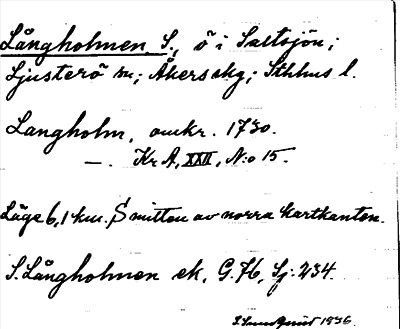 Långholmen, S., ö i Saltsjön;
Ljusterö sn; Åkers skg; Sthlms l.
Langholm, omkr. 1730.
—. Kr A, XXII, N:o 15.
Läge 6,1 km. S mitten av norra kartkanten.
S. Långholmen ek, G. 76, Sj: 234.
1936.